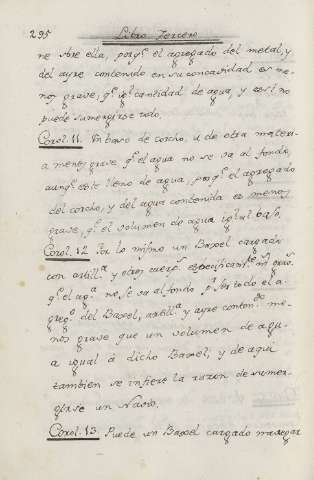 295 Libro Tercero
ne sbre ella, porq.e el agregado del metal, y
del ayre contenido en su concavidad es me-
nos grave, q.e igl cantidad de agua, y assi no
puede sumergirse todo.
Corol. 11. Vn baso de corcho, u de otra materi-
a menos grave q.e el agua no se va al fondo,
aunq.e este lleno de agua, porq.e el agregado
del corcho, y del agua contenida es menos
grave, q.e el volumen de agua igual al baso.
Corol. 12. Por lo mismo un Baxel cargado
con artill.a y otros cuerp.s especificam.te mas grav.s
q.e el ag.a no se va al fondo p.r ser todo el a-
greg.o del Baxel, artill.a y ayre conten.do me-
nos grave que un volumen de agu-
a igual á dicho Baxel, y de aqui
tambien se infiere la razon de sumer-
girse un Navio.
Corol. 13. Puede un Baxel cargado navegar